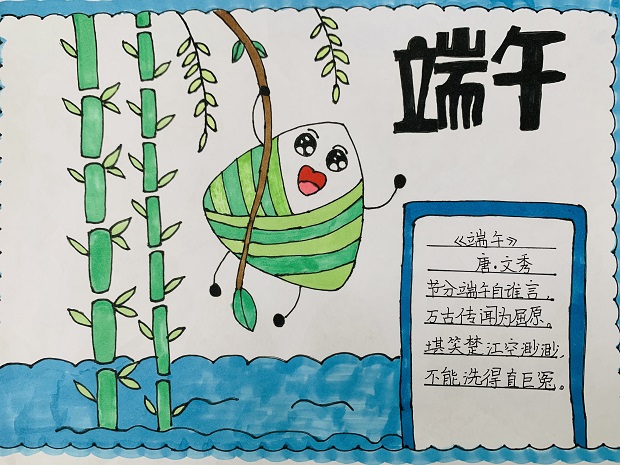 端午
《端午》
唐·文秀
节分端午自谁言，
万古传闻为屈原。
堪笑楚江空渺渺，
不能洗得直臣冤。